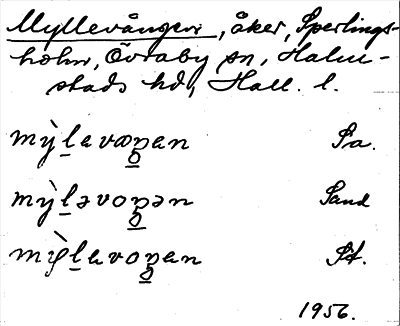 Myllevången, åker, Sperlings-
holm, Övraby sn, Halm-
stads hd, Hall. l.
mỳl̲avoŋ̲an Sa.
mỳl̲əvoŋ̲ən Sand
l̲avoŋ̲an St.
1956.